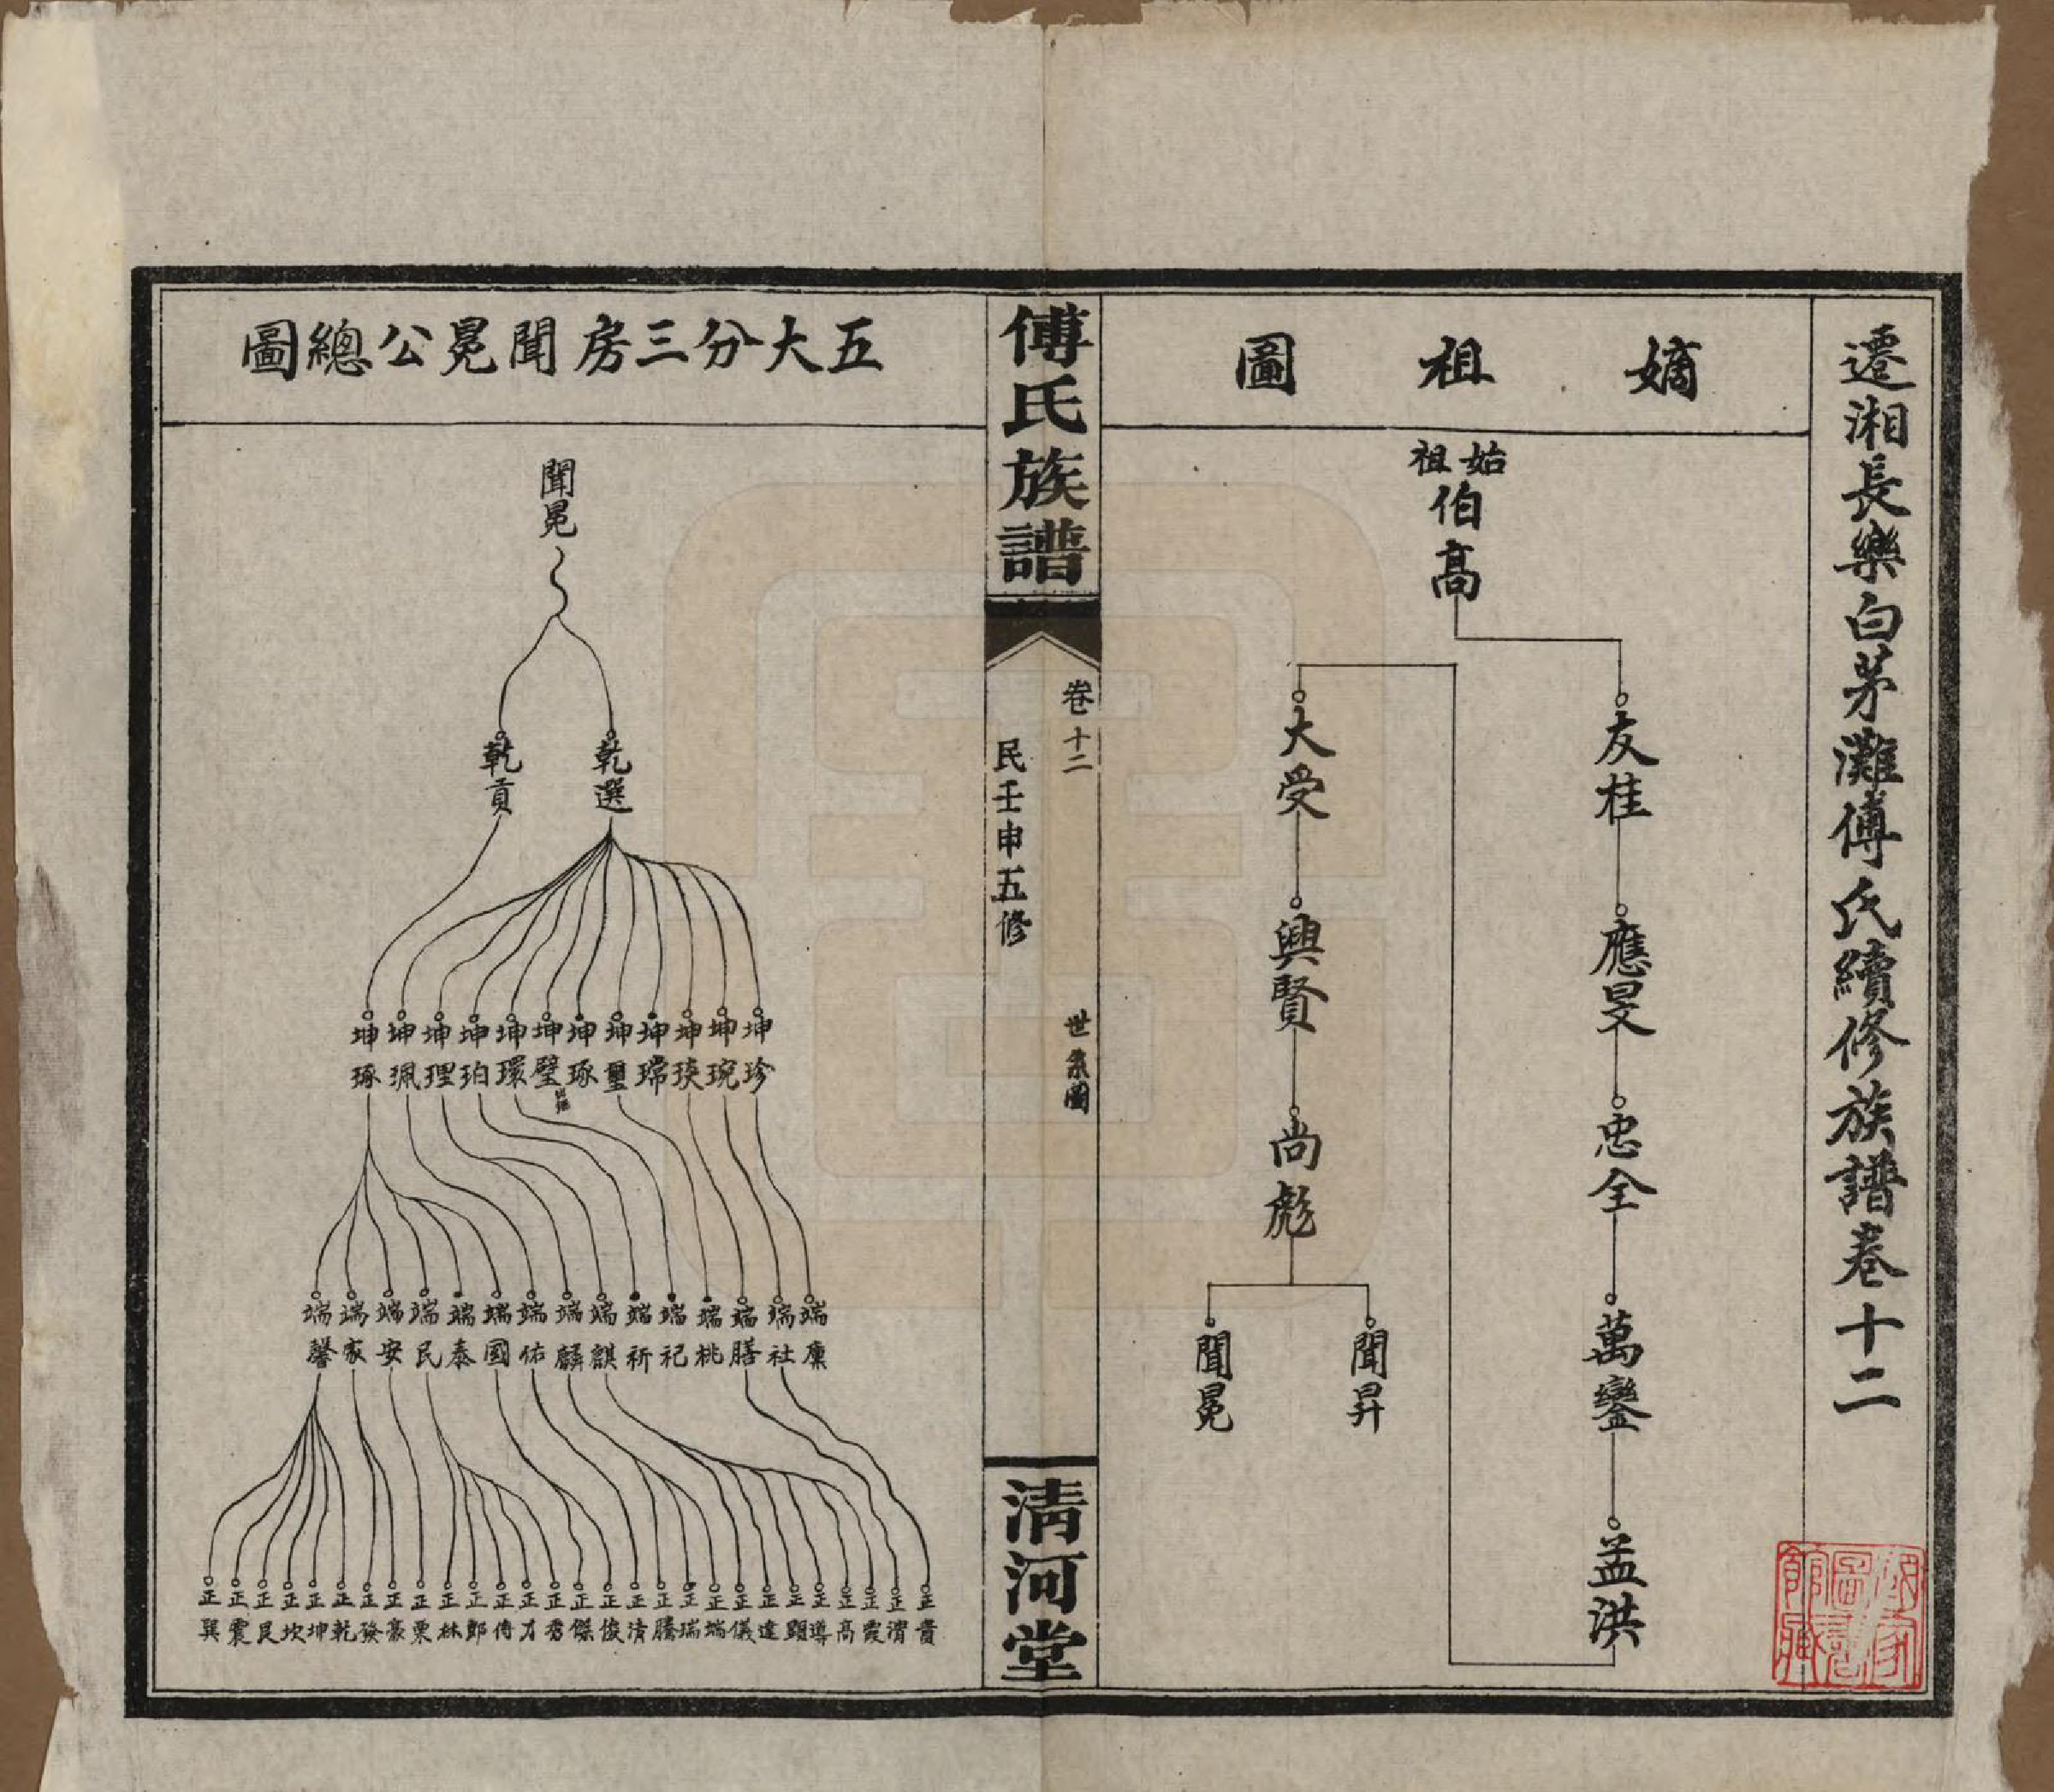 遷湘長樂白茅灘傅氏續修族譜卷十二
嫡祖圖
始祖
伯高
友桂
應旻
忠全
萬鑾
孟洪
大受
興賢
尚彪
聞昇
聞冕
傅氏族譜
卷十二
世系圖
民壬申五修
清河堂
五大分三房聞冕公總圖
聞冕
乾選
乾貢
坤珍
坤琬
坤瑛
坤瑺
坤璽
坤琢
坤璧
坤環
坤珀
坤理
坤珮
坤琢
端廩
端社
端膳
端桃
端祀
端祈
端麒
端麟
端佑
端國
端泰
端民
端安
端家
端馨
正貴
正渭
正霞
正高
正導
正顯
正達
正儀
正端
正瑞
正騰
正清
正俊
正傑
正秀
正才
正侍
正郎
正林
正栗
正豪
正發
正乾
正坤
正坎
正艮
正震
正巽